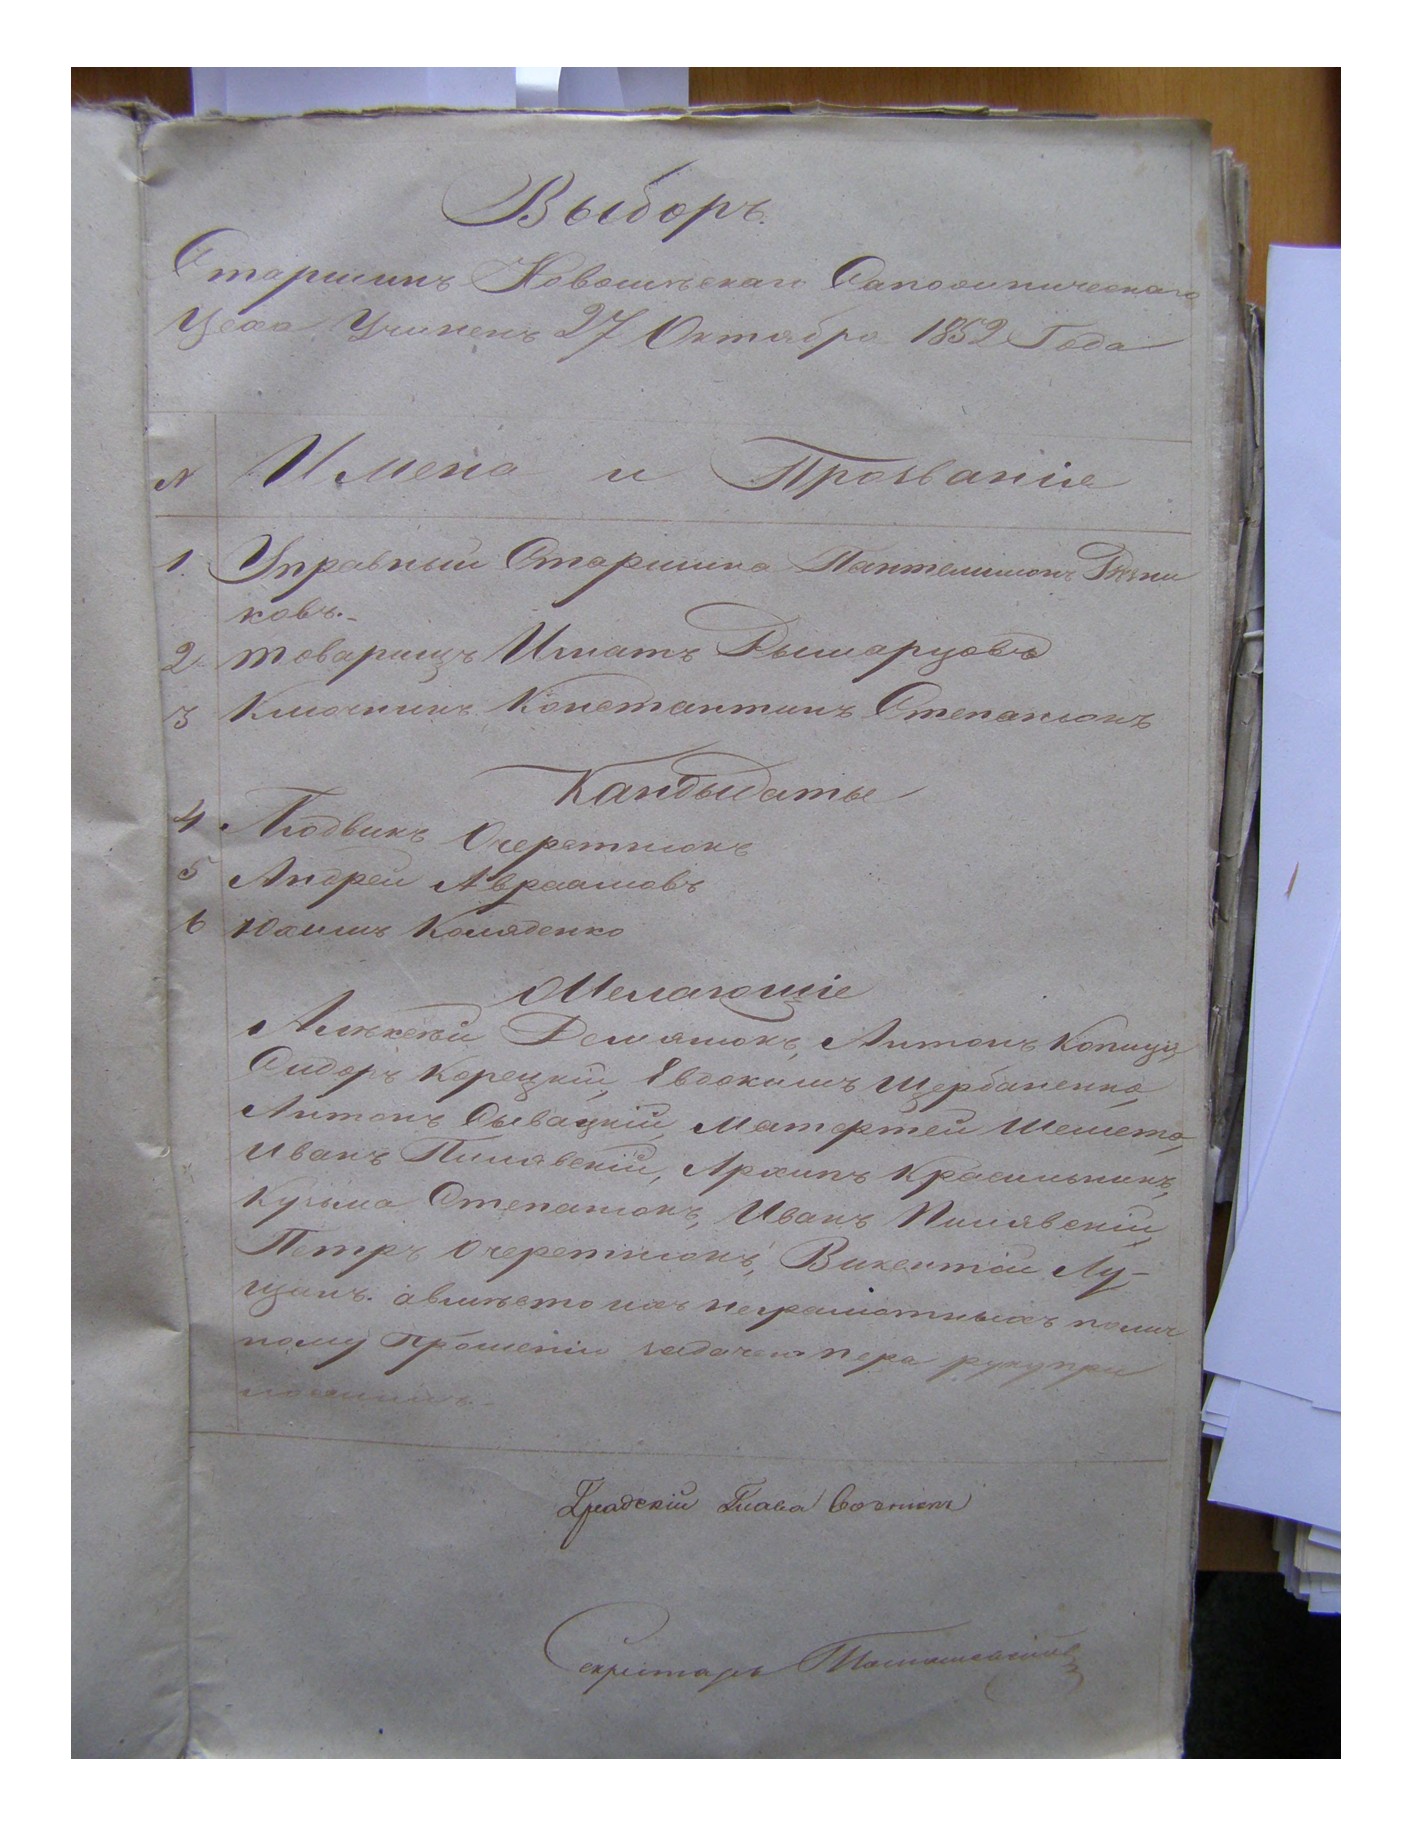 Выборъ.
Старшинъ Новомѣскаго Сапожническаго
Цеха Учиненъ 27 Октября 1852 Года
№ Имена и Прозванія
1. Управный Старшина Пантелимонъ Резни
ковъ.-
2. товарищъ Игнатъ Дымарцовъ
3 Ключникъ Константинъ Степанюкъ
Кандыдаты
4 Людвикъ Очеретнюкъ
5 Андрей Авраамовъ
6 Юхимъ Коляденко
Желающіе
Алексѣй Демянюкъ, Антонъ Копица
Сидоръ Корецкій, Евдокимъ Щербаненко,
Антонъ Сывацкій, Матфтей Шемета,
Иванъ Пилявскій, Архипъ Красильникъ,
Кузьма Степанюкъ, Иванъ Пилявскій
Петръ Очеретнюкъ, Викентій Лу-
цанъ. авмѣсто ихъ неграмотныхъ полич
ному Прошенію задачею пера руку при
ложилъ.-
Градскій Глава
Секретарь